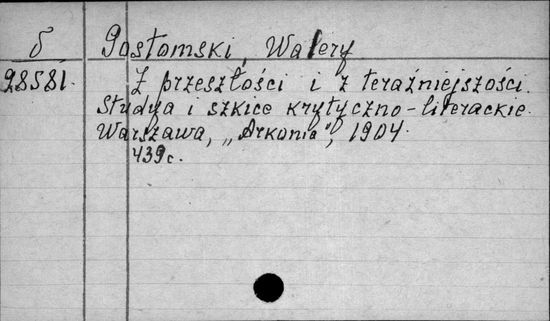 б Gostomski, Walery
98581. Z przeszłości i z teraźniejszości.
Studya i szkice krytyczno-literackie.
Warszawa, „Arkonia”, 1904.
439 c.